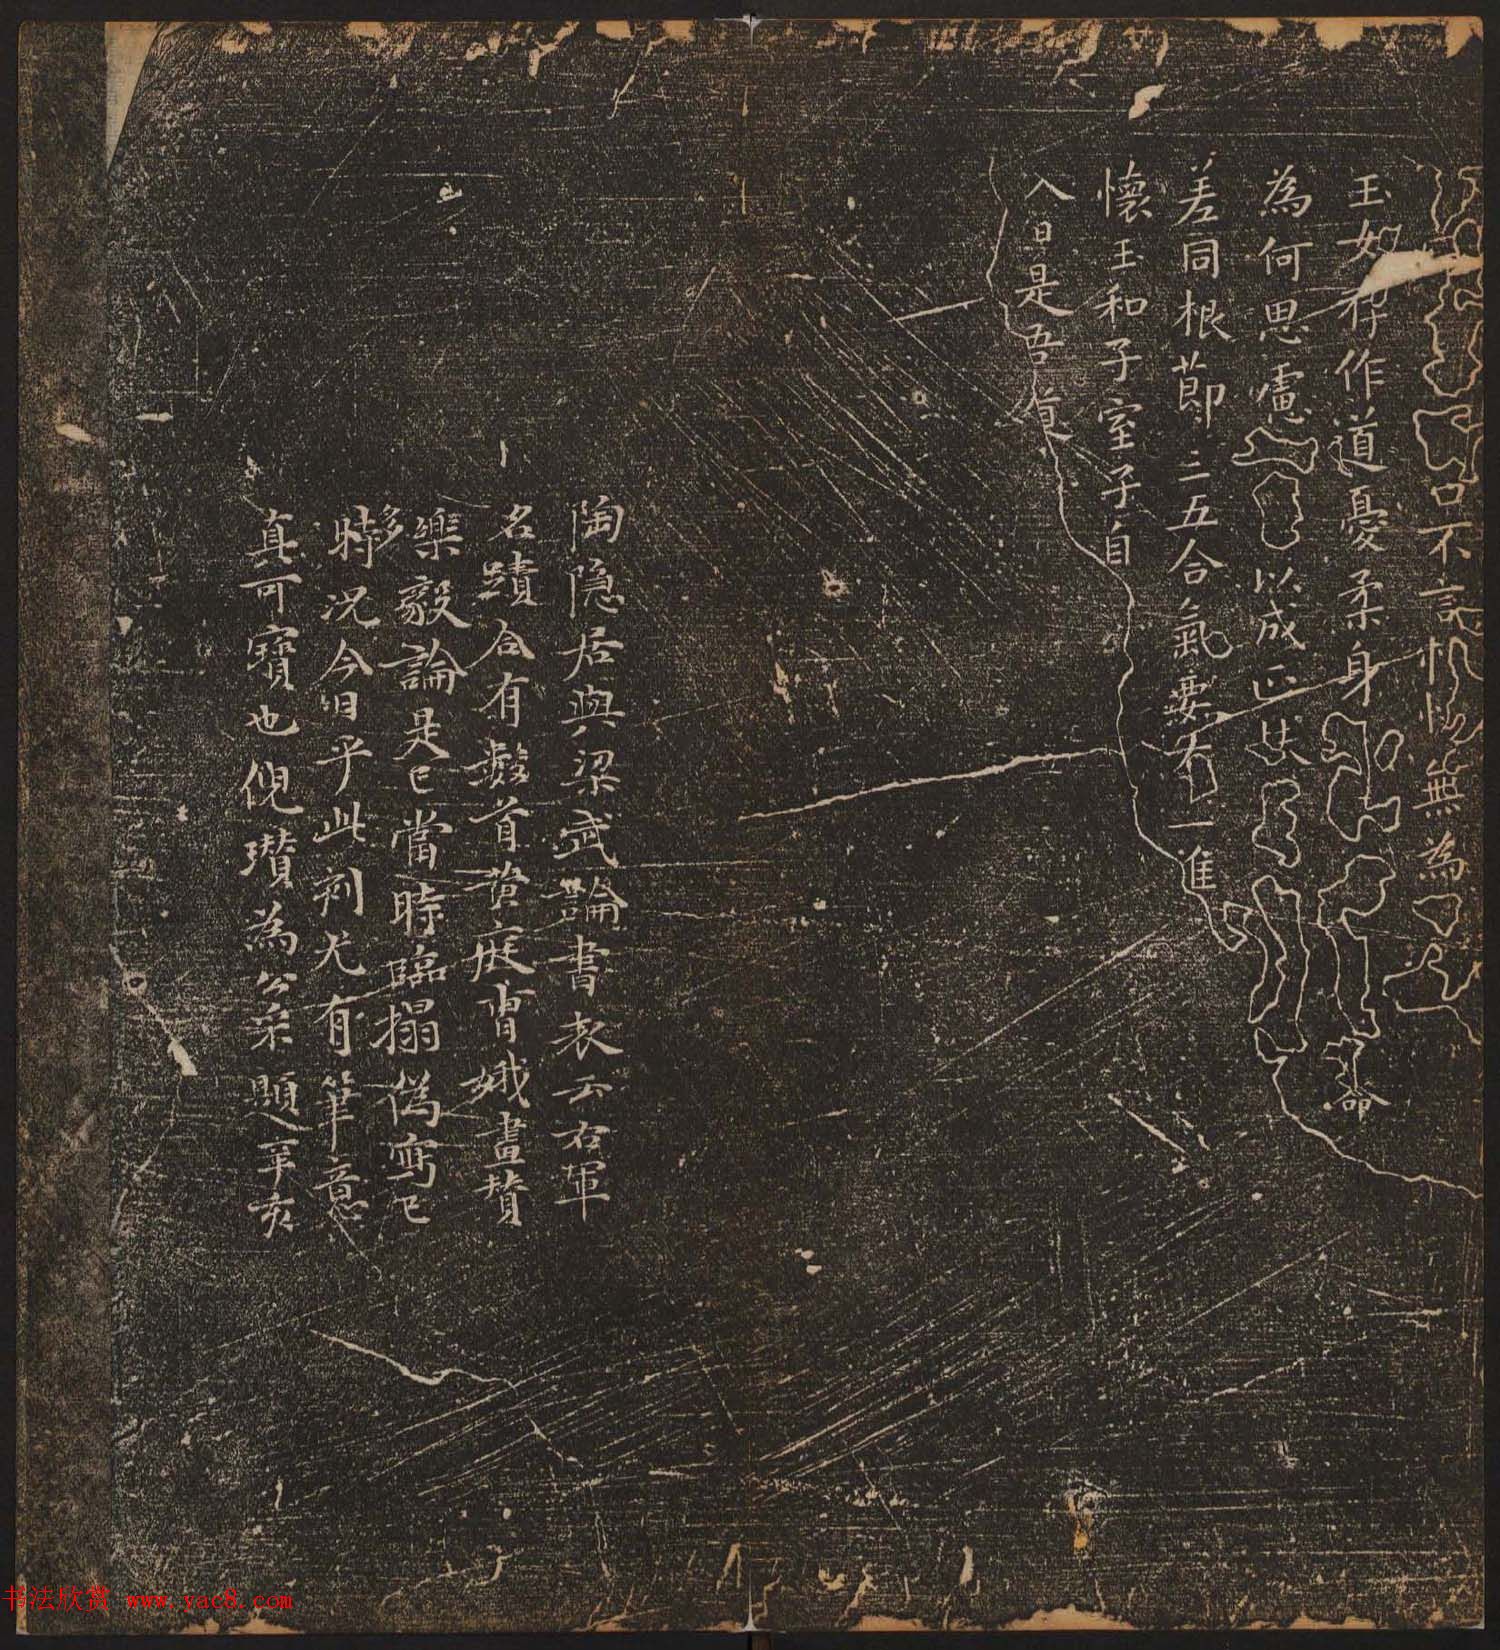 口不言恬恢無為
玉女存作道憂柔身 命
為何思慮 以成正 
差同根節三五合氣要有一進
懷玉和子室子自
入日是吾
陶隱居與梁武論書表云右軍
名蹟合有數首黃庭曹娥畫贊
樂毅論是已當時臨搨偽寫已多
時況今日乎此刻尤有筆意
真可寶也倪瓚為公采題辛亥
书法欣赏 www.yac8.com